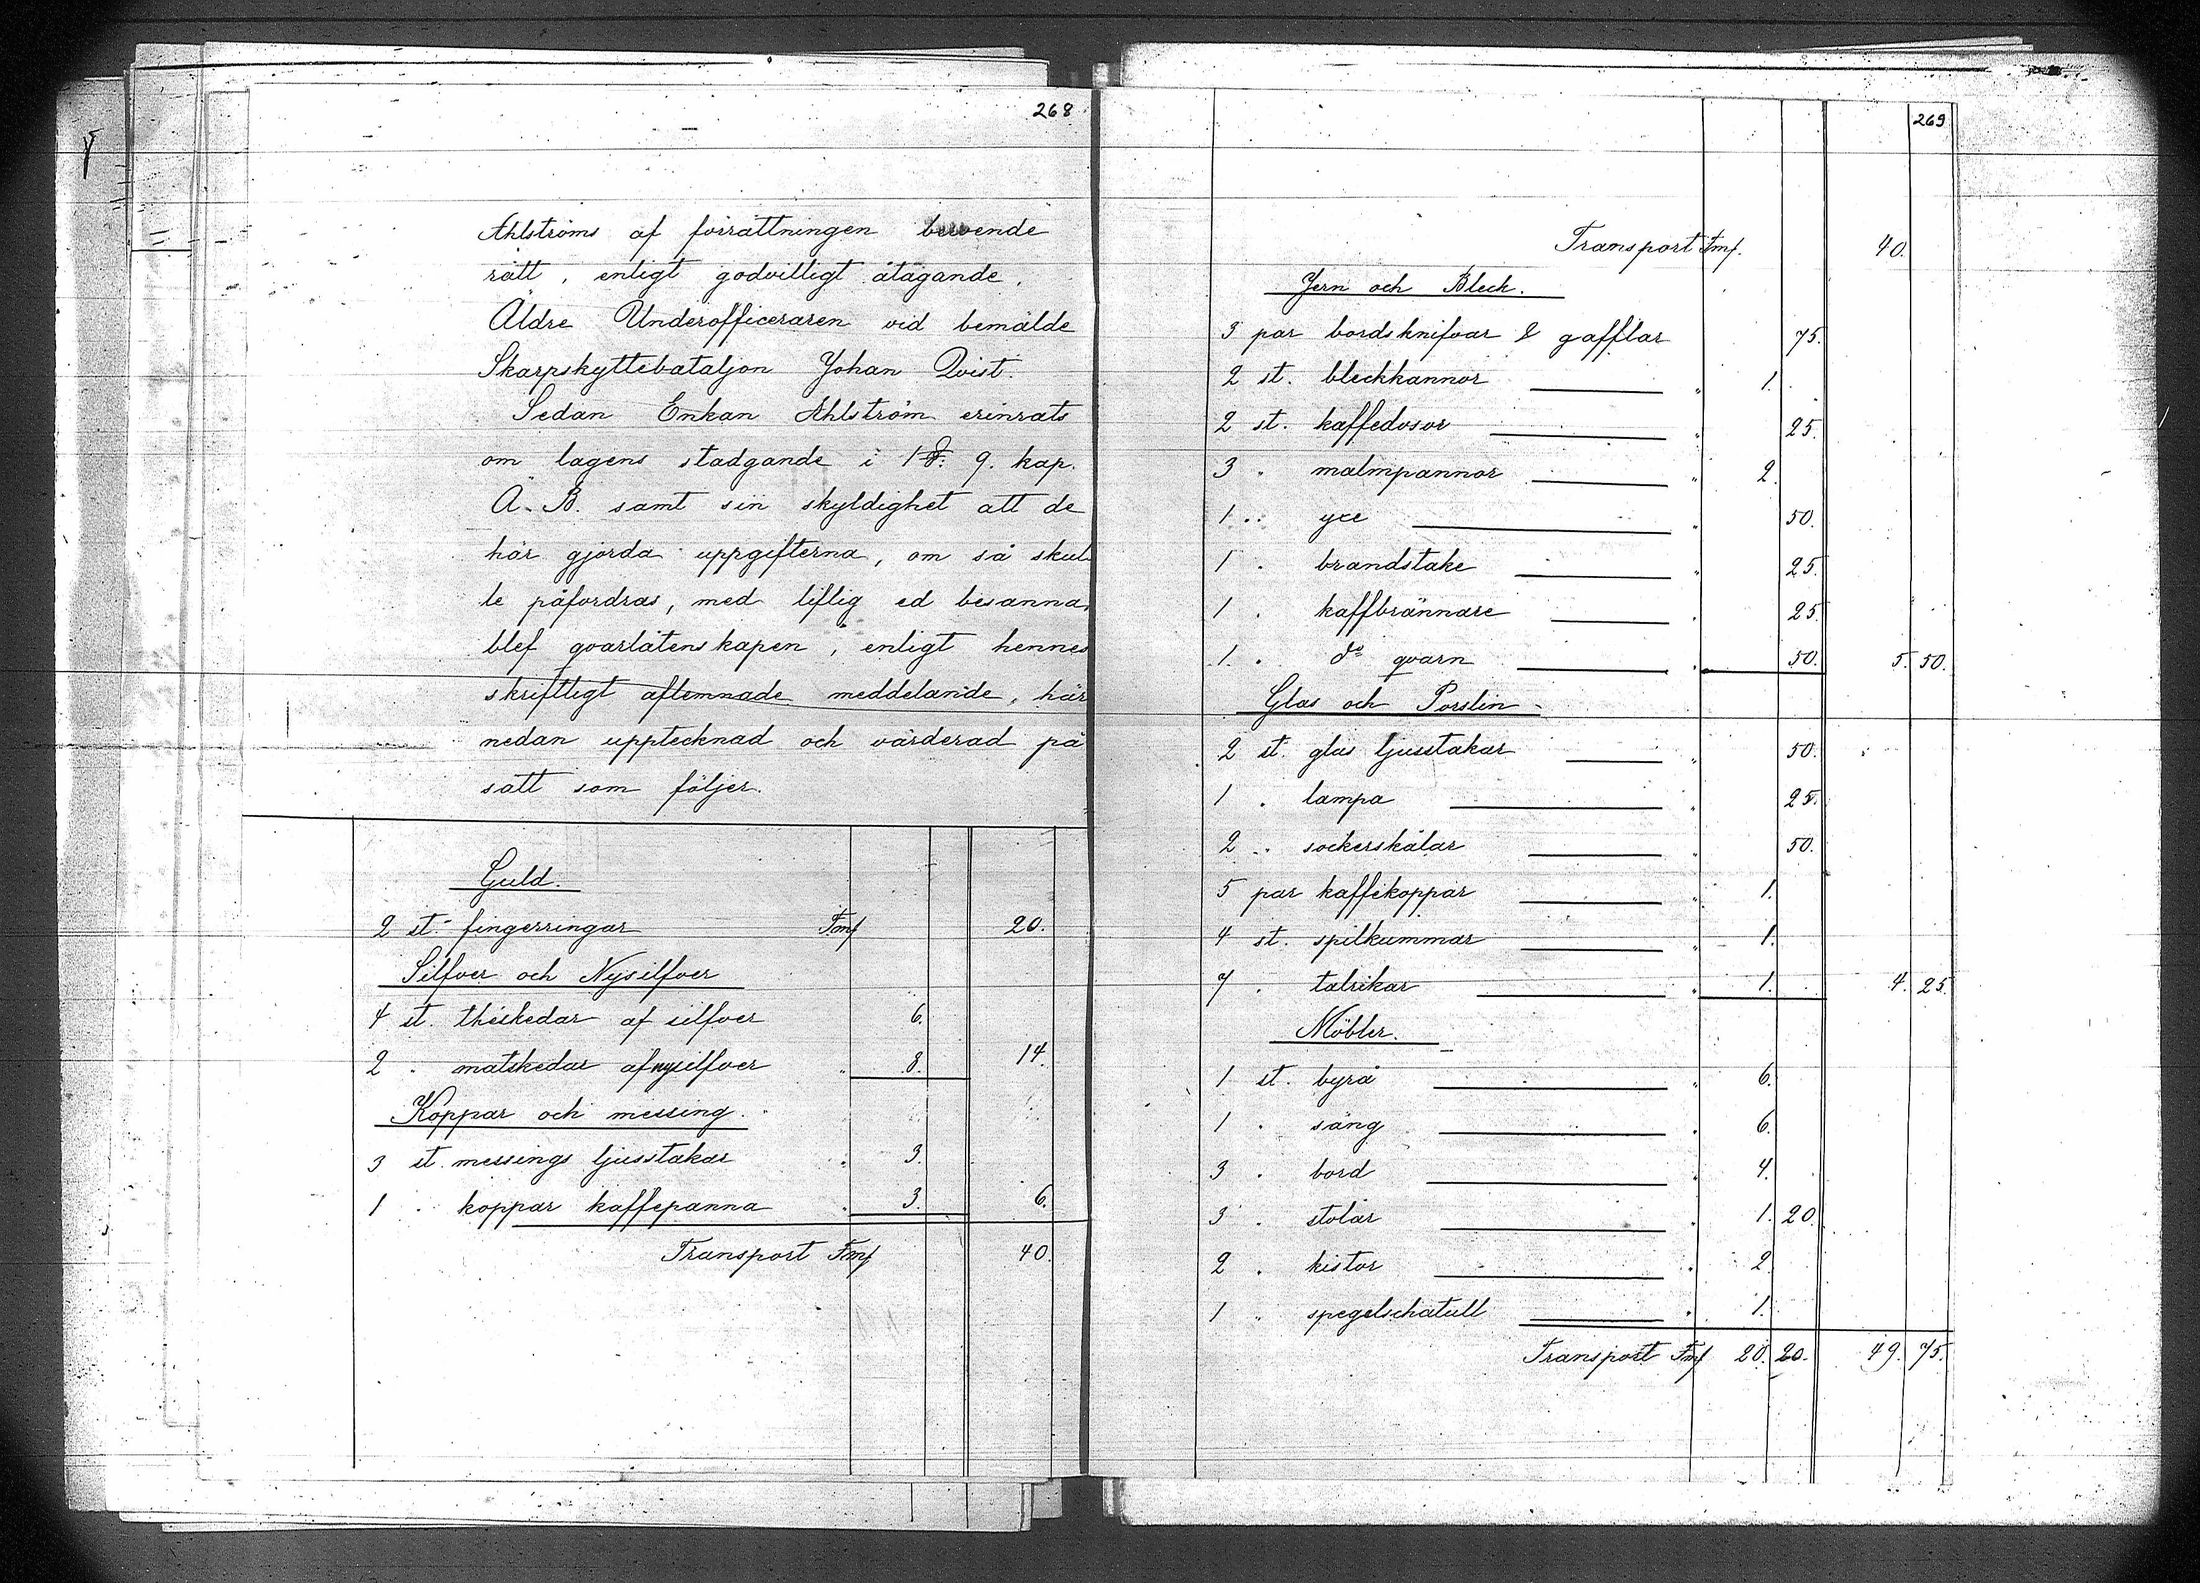 268
Ahlströms af förrättningen beroende
rätt, enligt godvilligt åtagande,
Äldre Underofficeraren vid bemälde
Skarpskyttebataljon Johan Qvist.
Sedan Enkan Ahlström erinrats
om lagens stadgande i 1 §. 9. kap.
Ä. B. samt sin skyldighet att de
här gjorda uppgifterna, om så skul
le påfordras, med liflig ed besanna,
blef qvarlåtenskapen, enligt hennes
skriftligt aflemnade meddelande, här
nedan upptecknad och värderad på
sätt som följer.
Guld.
2 st. fingerringar Fmf 20.
Silfver och Nysilfver
4 st. théskedar af silfver 6.
2 " matskedar af nysilfver " 8. 14.
Koppar och messing.
3 st. messings ljusstakar " 3.
1 " koppar kaffepanna " 3. 6.
Transport Fmf 40.
269
Transport Fmf. 40.
Jern och Blech.
3 par bordsknifvar & gafflar 75.
2 st. bleckkannor " 1.
2 st. kaffedosor " 25.
3 " malmpannor " 2.
1 " yxe " 50.
1 " brandstake " 25.
1 " kaffbrännare " 25.
1 " do qvarn " 50. 5. 50.
Glas och Porslin
2 st. glas ljusstakar " 50.
1 " lampa " 25.
2 " sockerskålar " 50.
5 par kaffekoppar " 1.
4 st. spilkummar " 1.
7 " talrikar " 1. 4. 25.
Möbler.
1 st. byrå " 6.
1 " säng " 6.
3 " bord 4.
3 " stolar " 1. 20.
2 " kistor " 2.
1 " spegelschatull " 1.
Transport Fmf 20. 20. 49. 75.